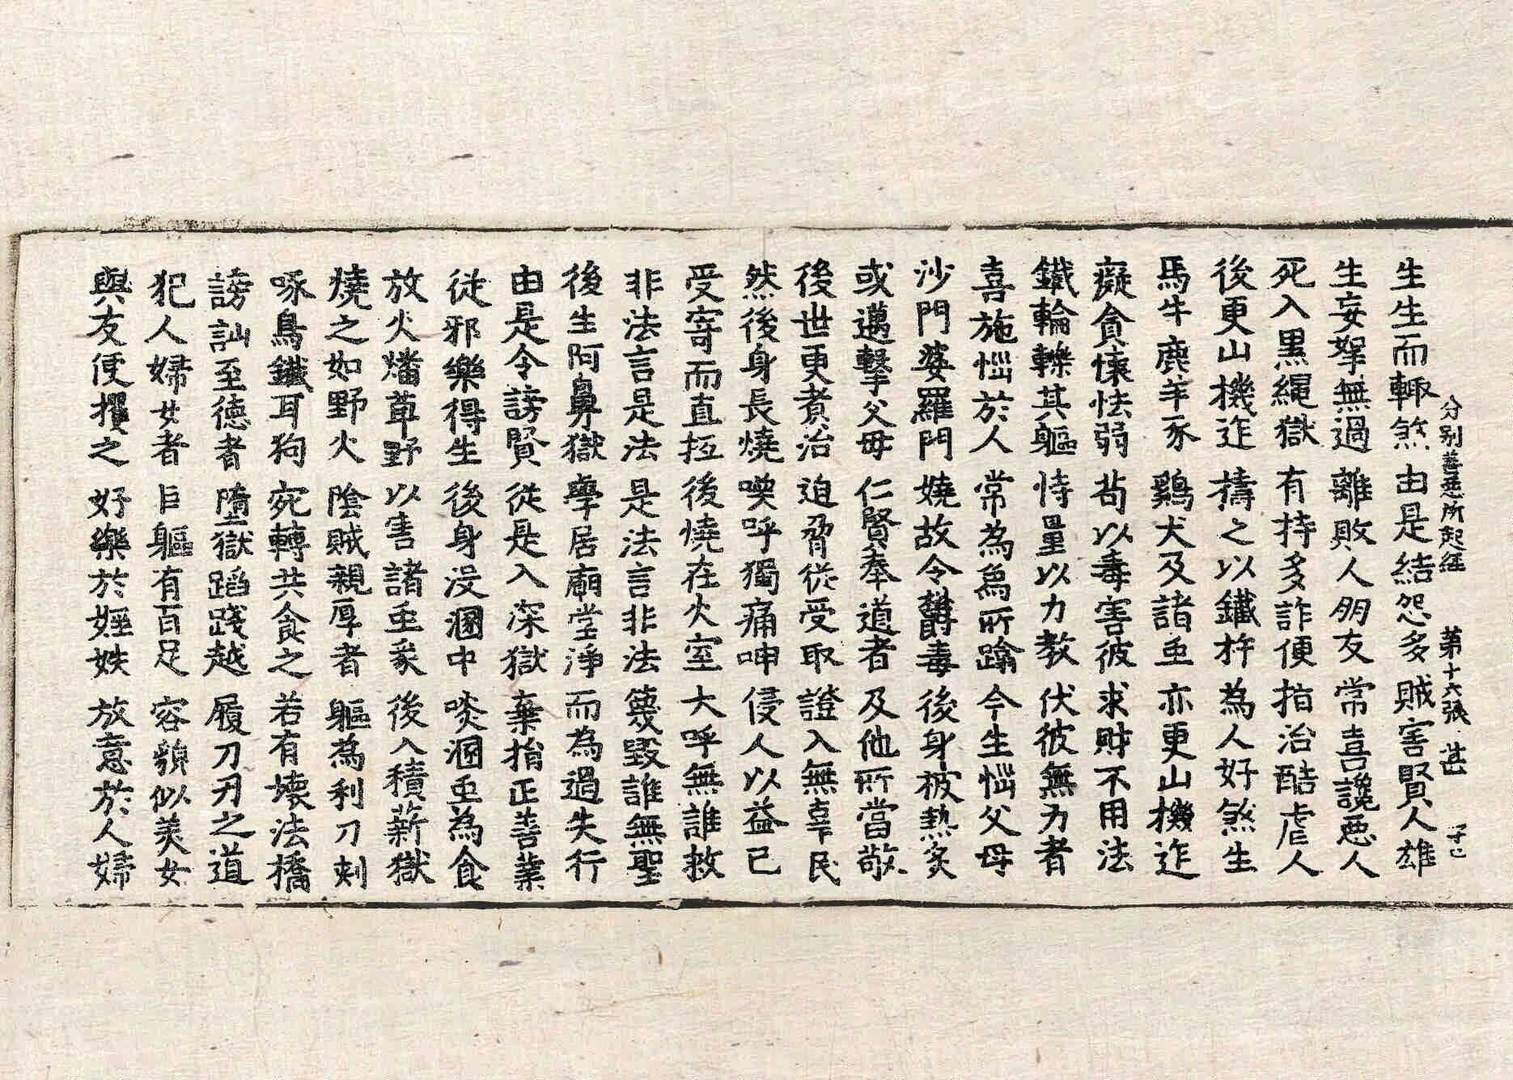 分别善惡所起經 第十六張 甚
生生而輙煞 由是結怨多 賊害賢人雄
生妄孥無過 離敗人朋友 常喜讒惡人
死入黒繩獄 有持多詐便 指治酷虐人
後更山機迮 擣之以鐵杵 為人好煞生
馬牛麋羊豕 鷄犬及諸䖝 亦更山機迮
癡貪懷怯弱 苟以毒害彼 求財不用法
鐵輪轢其軀 恃量以力教 伏彼無力者
喜施惱於人 常為為所踰 今生惱父母
沙門婆羅門 嬈故令鬱毒 後身被熱炙
或邁擊父母 仁賢奉道者 及他所當敬
後世更煑治 迫脅從受取 證入無辜民
然後身長燒 喚呼獨痛呻 侵人以益己
受寄而直抂 後燒在火室 大呼無誰救
非法言是法 是法言非法 篾毀誰無聖
後生阿鼻獄 學居廟堂淨 而為過失行
由是令謗賢 從是入深獄 棄捐正善業
從邪樂得生 後身没溷中 啖溷䖝為食
放火燔草野 以害諸䖝豸 後入積薪獄
燒之如野火 陰賊親厚者 軀為利刀刾
啄鳥鐵耳狗 宛轉共食之 若有壞法橋
謗訕至德者 墮獄蹈踐越 履刀刃之道
犯人婦女者 巨軀有百足 容顏似美女
與友便攫之 好樂於婬妷 放意於人婦